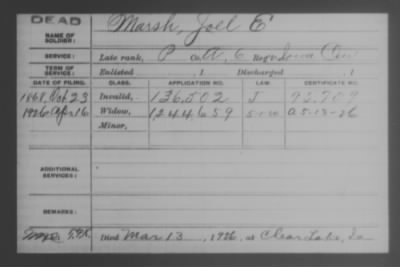 DEAD
NAME OF SOLDIER: Marsh, Joel E
SERVICE: Late rank, P Co. A, 6 Reg't Iowa Cav
TERM OF SERVICE: Enlisted , 1 Discharged , 1
DATE OF FILING. CLASS. APPLICATION NO. LAW. CERTIFICATE NO.
1867, Oct 23 Invalid, 136,502 92,709
1926 Apr 16 Widow, 1,244,659 5-1-20 A 5-13-26
Minor,
ADDITIONAL SERVICES:
REMARKS:
Died Mar 13, 1926, at Clear Lake, Ia